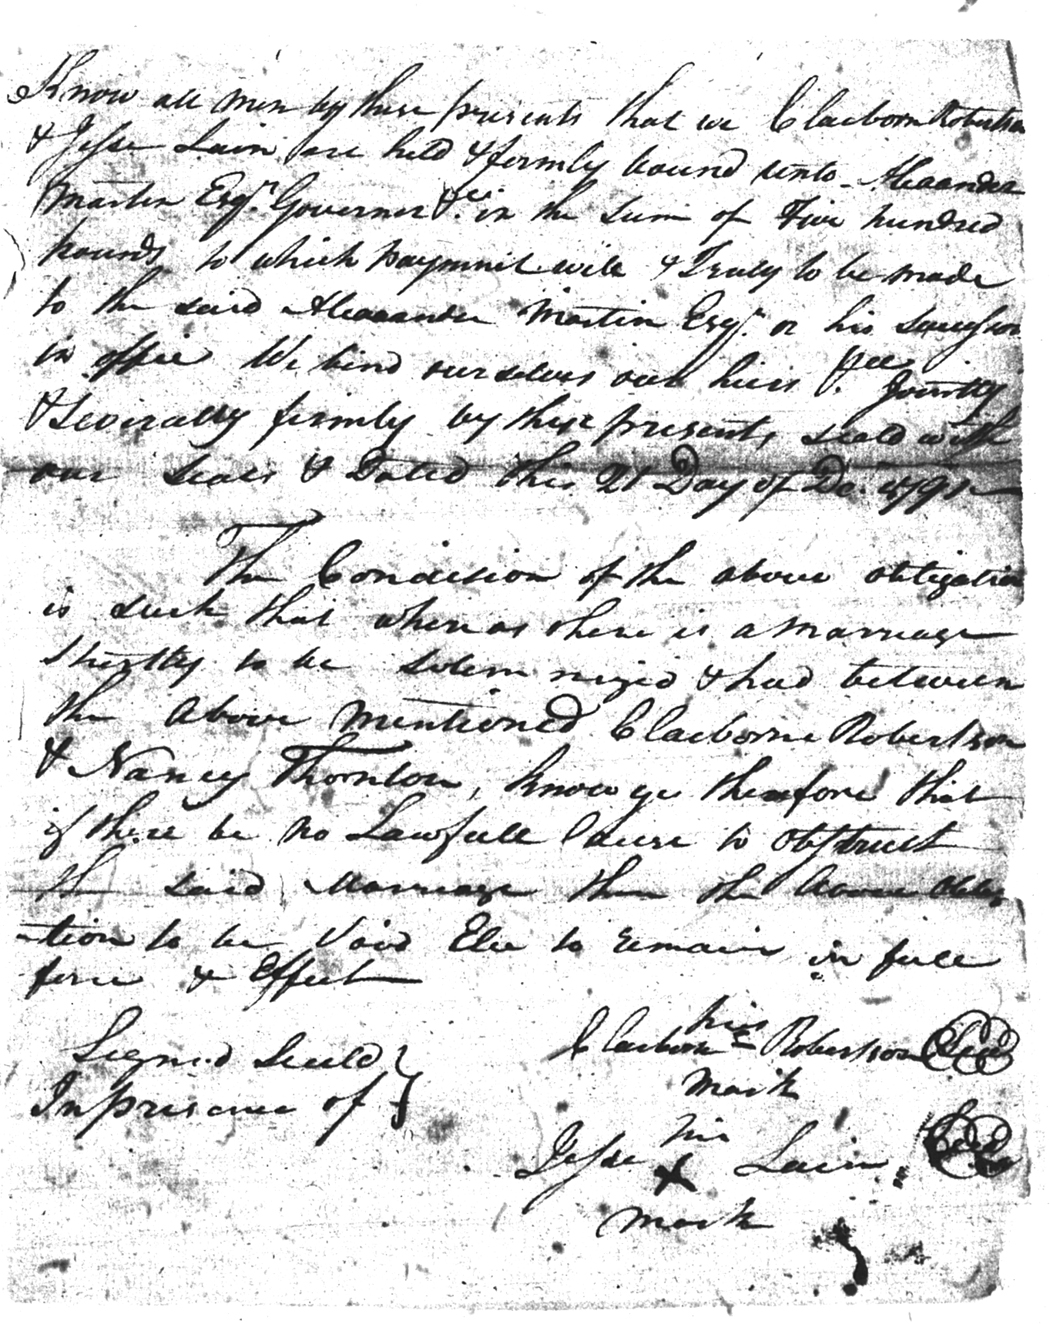 Know all men by these presents that we Claiborn Robertson
& Jesse Lain are held & firmly bound unto Alexander
Martin Esqr. Governer &c. in the sum of Five hundred
pounds to which payment will & Truly to be made
to the said Alexander Martin Esqr. or his Sucessor
in office We bind ourselves our heirs &c Jointly
& Severally firmly by these presents seald with
our seals & Dated this 21 Day of De. 1791
The Condition of the above obligation
is such that whereas there is a marriage
shortly to be solemnized & had between
the above mentioned Claiborne Robertson
& Nancy Thornton, know ye therefore that
if there be no Lawfull Cause to obstruct
the said Marriage then the above obliga
-tion to be Void Else to remain in full
force & Effect
Signed Seald }
In presence of }
his
Claiborn Robertson Seal
mark
his
Jesse X Lain Seal
mark